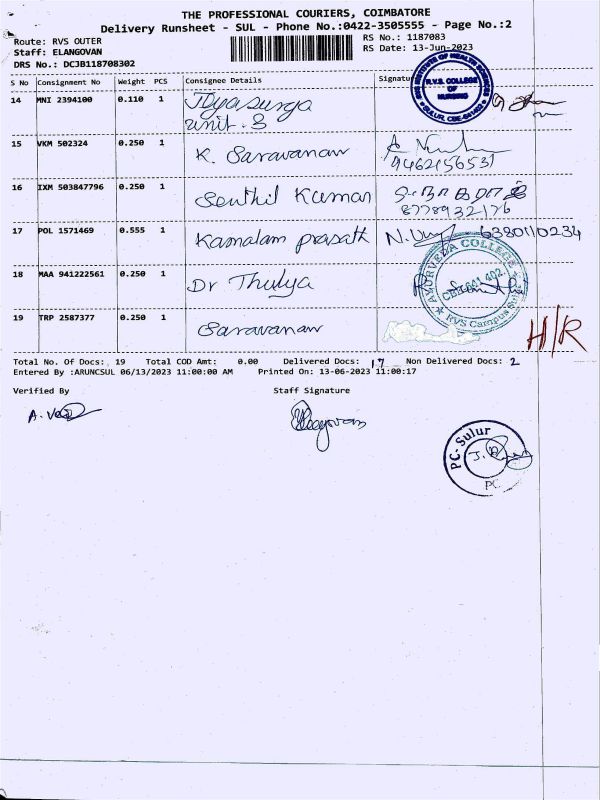 THE PROFESSIONAL COURIERS, COIMBATORE
Delivery Runsheet - SUL - Phone No.:0422-3505555 - Page No.:2
Route: RVS OUTER
Staff: ELANGOVAN
DRS No.: DCJB118708302
RS No.: 1187083
RS Date: 13-Jun-2023
S No Consignment No Weight PCS Consignee Details Signature
R.V.S. COLLEGE
OF
NURSING
14 MNI 2394100 0.110 1
unit. 8
15 VKM 502324 0.250 1 K. Saravanan
9462156531
16 IXM 503847796 0.250 1 Senthil Kumar
8778932176
17 POL 1571469 0.555 1 Kamalam prasath 6380110234
AYURVEDA COLLEGE
CBE-641 402
RVS Campus Sulur
18 MAA 941222561 0.250 1 Dr Thulya
19 TRP 2587377 0.250 1 Saravanan
H/R
Total No. Of Docs: 19 Total COD Amt: 0.00 Delivered Docs: 17 Non Delivered Docs: 2
Entered By :ARUNCSUL 06/13/2023 11:00:00 AM Printed On: 13-06-2023 11:00:17
Verified By Staff Signature
PC-Sulur
PC